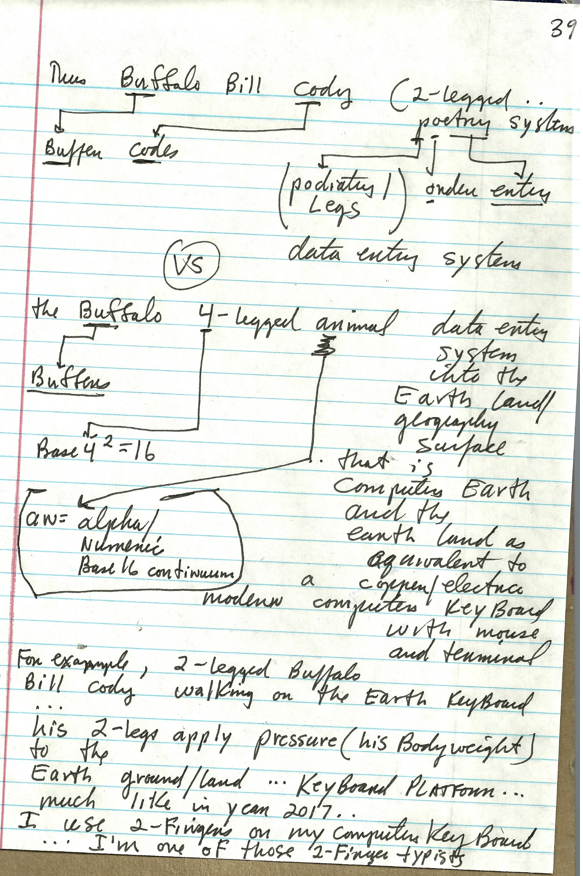 39
Thus Buffalo Bill Cody (2-legged ..
poetry system
Buffer codes
(podiatry/
Legs)
order entry
data entry system
VS
the Buffalo 4-legged animal data entry
system
into the
Earth land/
geography
surface
Buffers
Base 4²=16
.. that is
Computer Earth
and the
earth land as
equivalent to
a copper/electric
modern computer KeyBoard
with mouse
and terminal
an= alpha/
Numeric
Base 16 continuum
For example, 2-legged Buffalo
Bill Cody walking on the Earth KeyBoard
...
his 2-legs apply pressure (his Bodyweight)
to the
Earth ground/land ... KeyBoard PLATForm...
much like in year 2017..
I use 2-Fingers on my computer KeyBoard
... I'm one of those 2-Finger typists